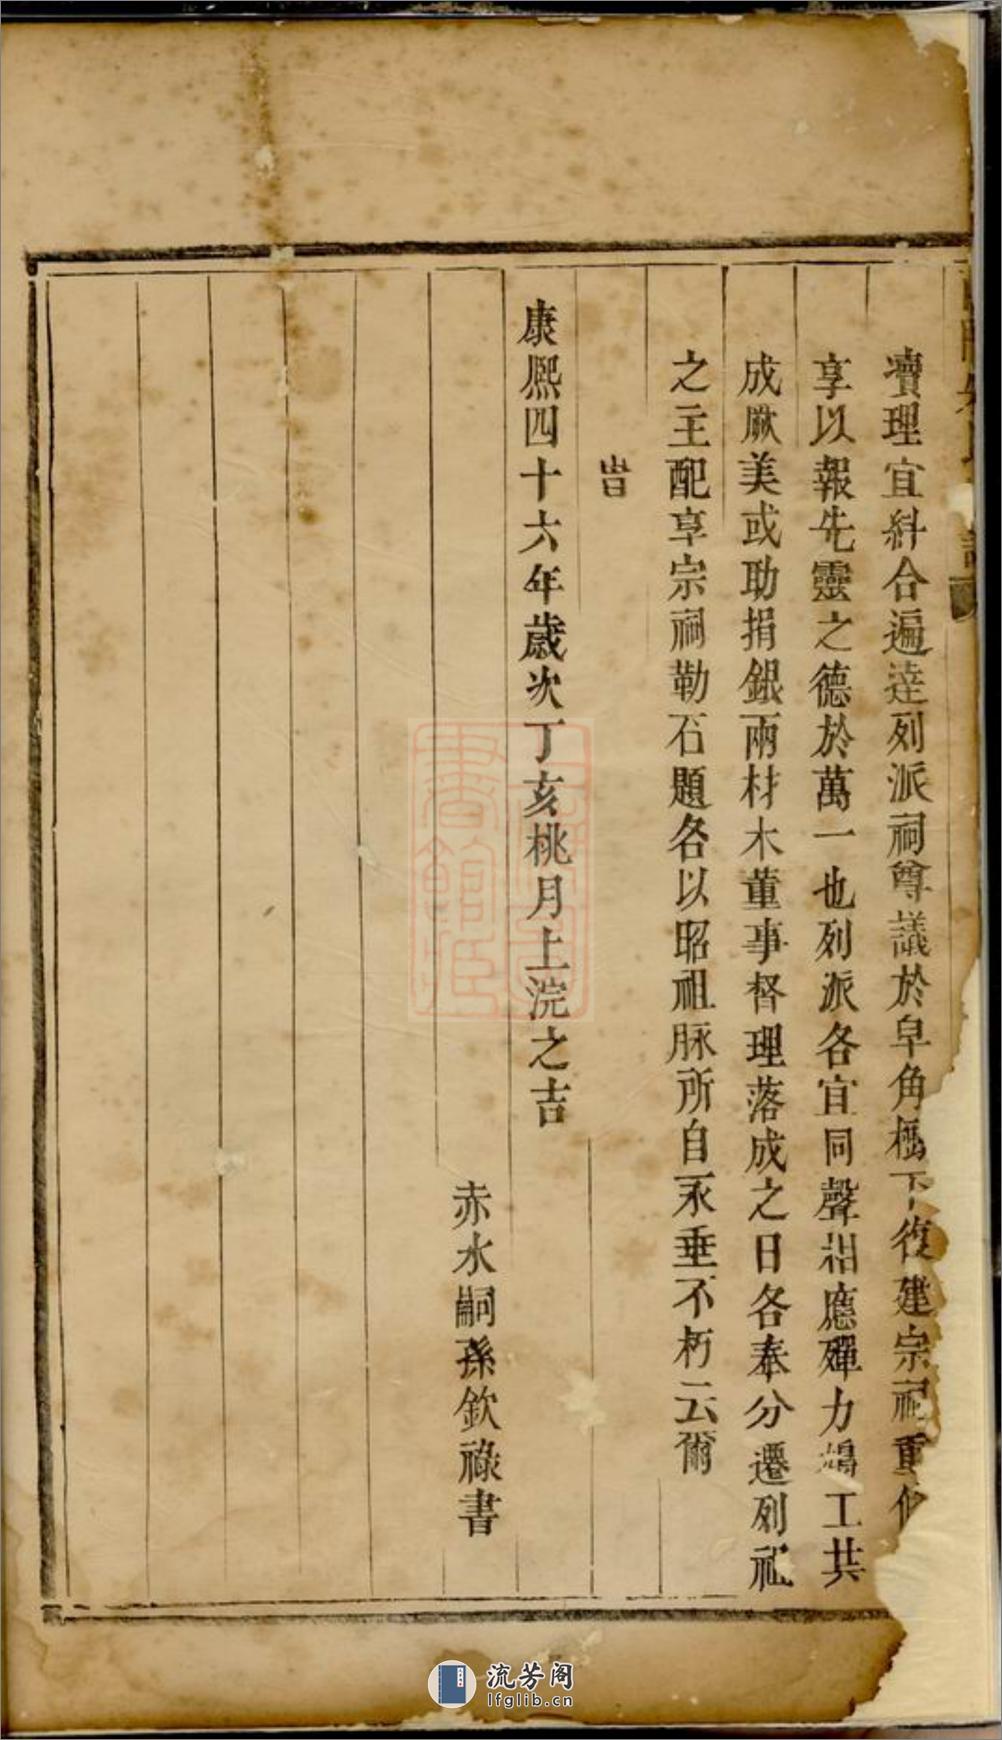 瀆理宜糾合遍達列派祠尊議於皁角樹下復建宗祀重修
享以報先靈之德於萬一也列派各宜同聲相應殫力鳩工共
成厥美或助捐銀兩材木董事督理落成之日各奉分遷列祖
之主配享宗祠勒石題各以昭祖脉所自永垂不朽云爾
旹
康熙四十六年歲次丁亥桃月上浣之吉
赤水嗣孫欽祿書
流芳阁
lfglib.cn